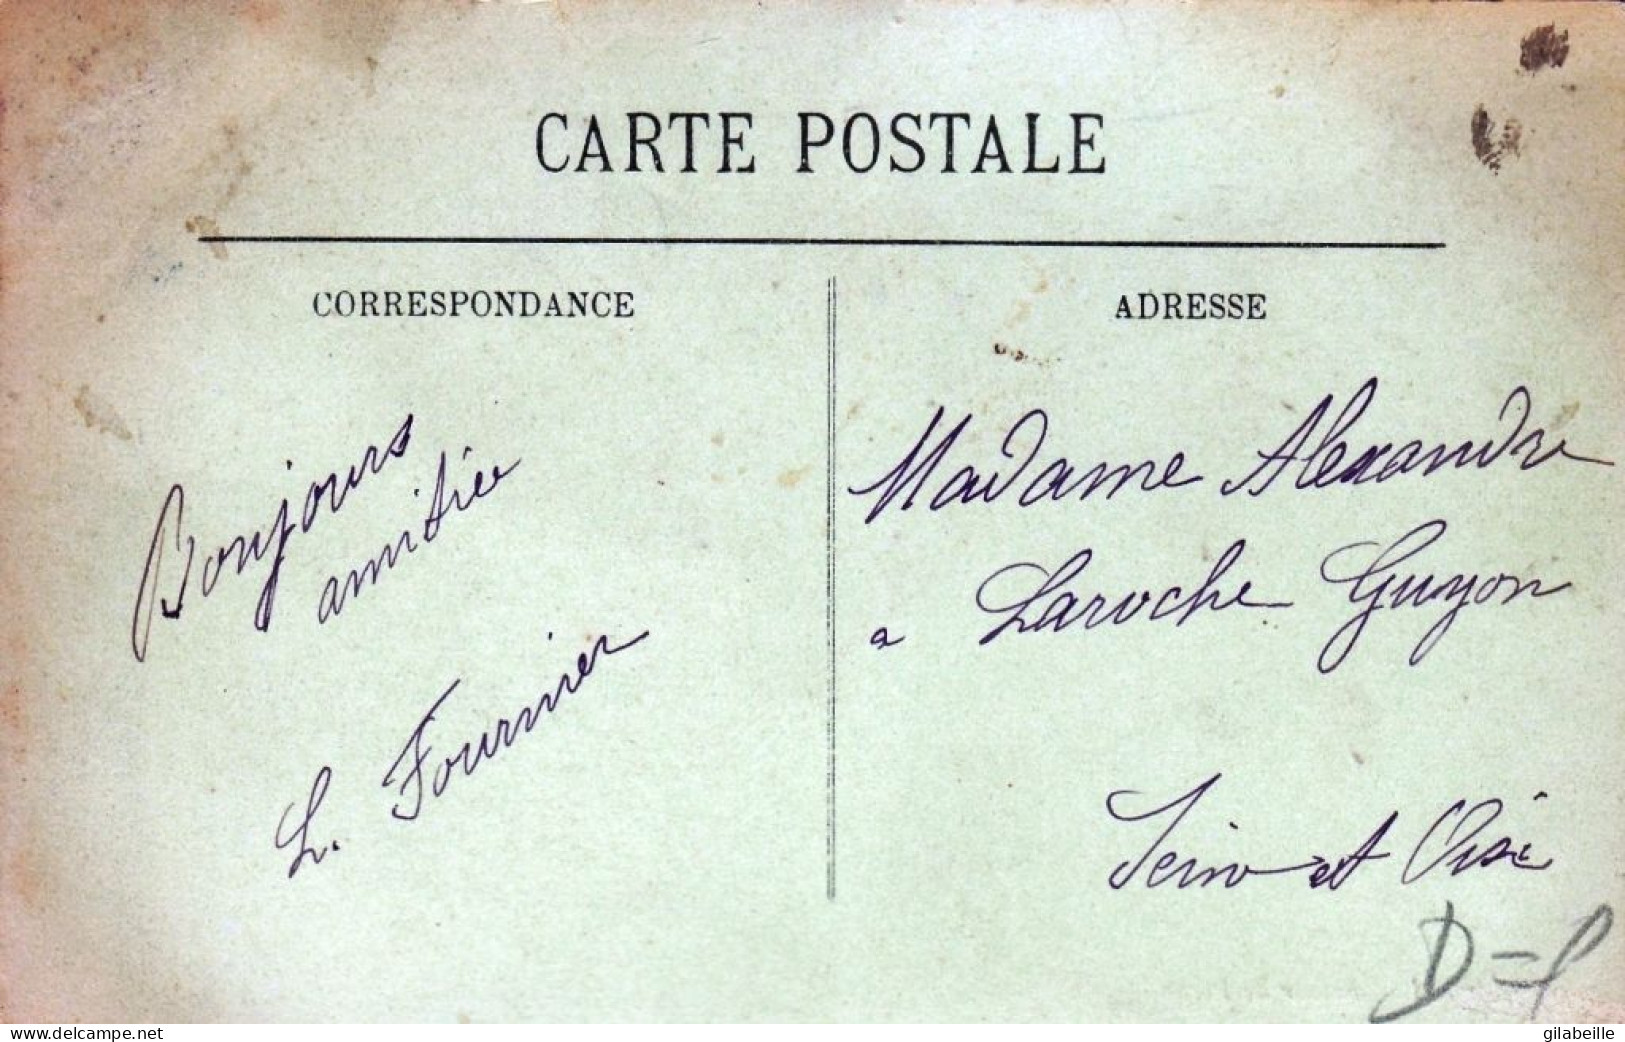 CARTE POSTALE
CORRESPONDANCE
Bonjours
amitiee
L. Fournier
ADRESSE
Madame Alexandre
a Laroche Guyon
Seine et Oise
D=f
www.delcampe.net
gilabeille